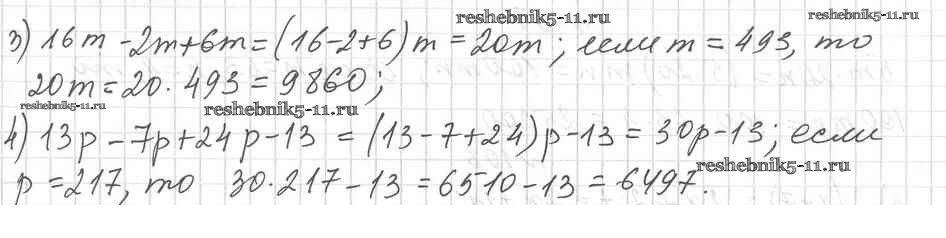 reshebnik5-11.ru reshebnik5-11.ru
3) 16m - 2m + 6m = (16 - 2 + 6) m = 20m ; если m = 493, то
20m = 20 · 493 = 9860 ;
reshebnik5-11.ru reshebnik5-11.ru
4) 13p - 7p + 24p - 13 = (13 - 7 + 24) p - 13 = 30p - 13 ; если
p = 217, то 30 · 217 - 13 = 6510 - 13 = 6497.
reshebnik5-11.ru